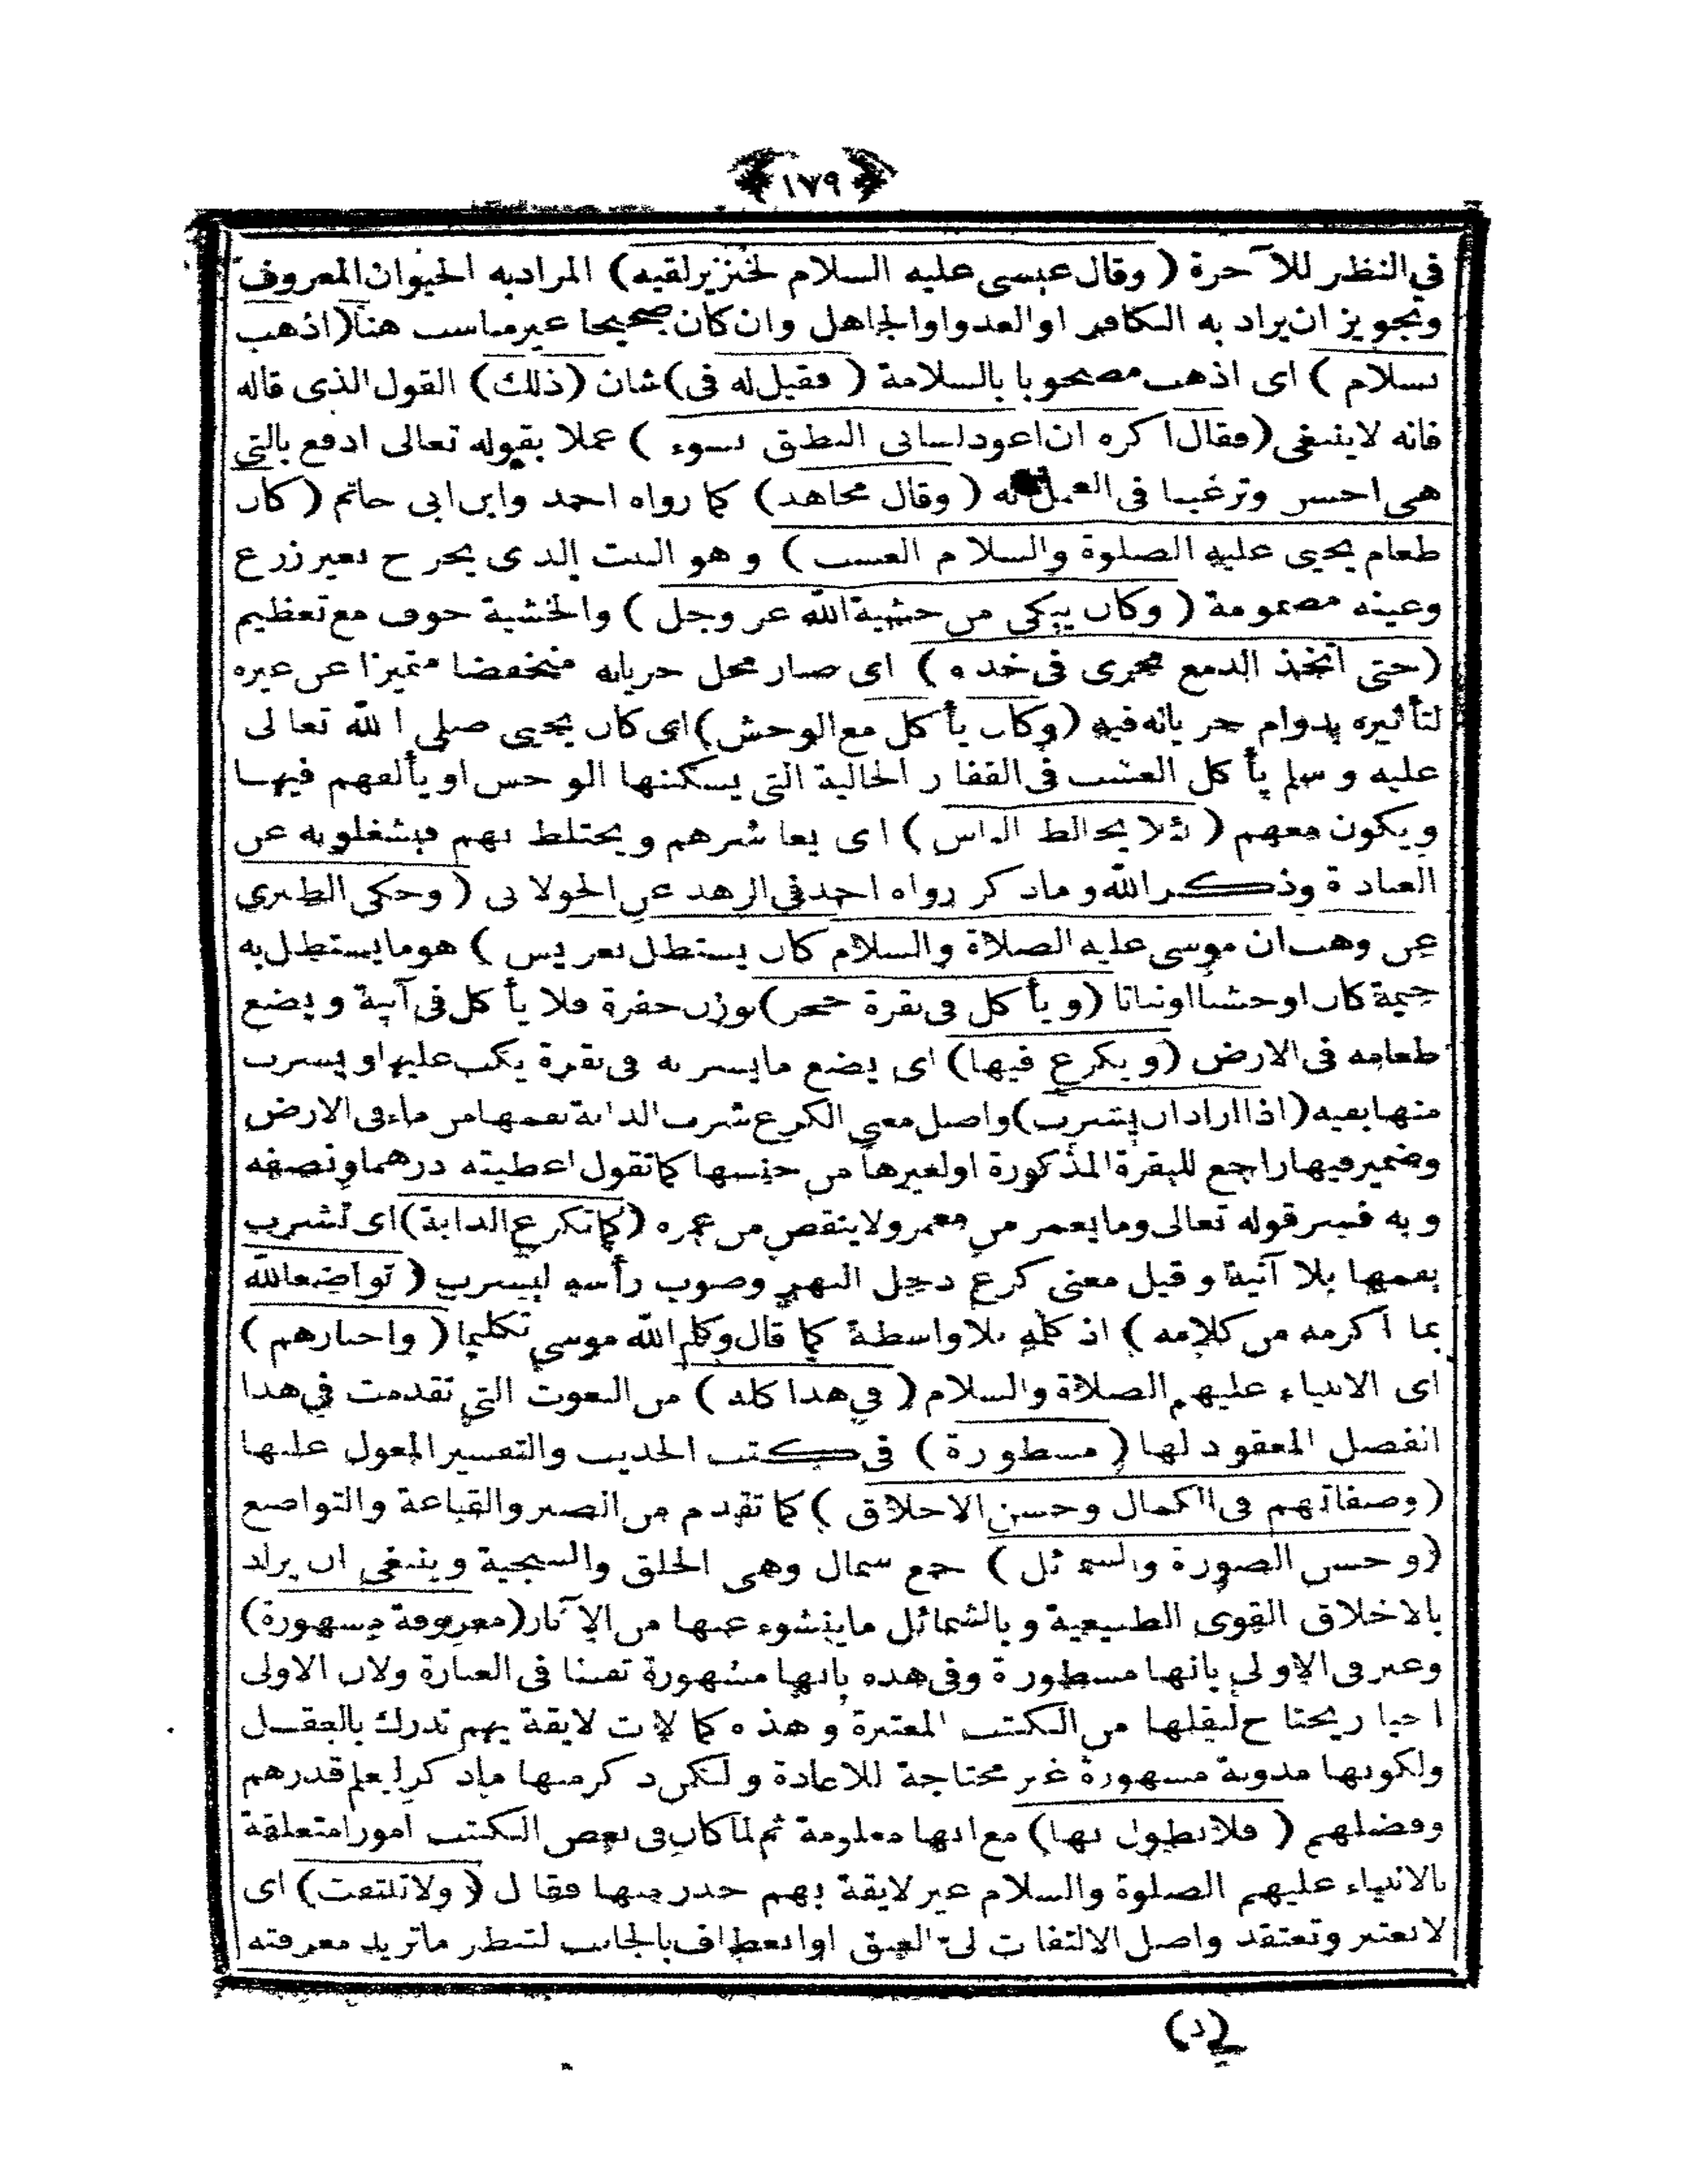 ﴿ ١٧٩ ﴾
فى النظر للآخرة ( وقال عيسى عليه السلام لخنزير لقيه ) المراد به الحيوان المعروف
وتجويز ان يراد به الكافر او العدو او الجاهل وان كان صحيحا غير مناسب هنا ( اذهب
بسلام ) اى اذهب مصحوبا بالسلامة ( فقيل له فى ) شان ( ذلك ) القول الذى قاله
فانه لاينبغى ( فقال اكره ان اعود لسانى النطق بسوء ) عملا بقوله تعالى ادفع بالتى
هى احسن وترغيبا فى العمل به ( وقال مجاهد ) كما رواه احمد وابن ابى حاتم ( كان
طعام يحيى عليه الصلوة والسلام العشب ) وهو النبت الذى يخرج بغير زرع
وعينه مضمومة ( وكان يبكى من خشية الله عز وجل ) والخشية خوف مع تعظيم
( حتى اتخذ الدمع مجرى فى خده ) اى صار محل جريانه منخفضا متميزا عن غيره
لتأثيره بدوام جريانه فيه ( وكان يأكل مع الوحش ) اى كان يحيى صلى الله تعالى
عليه وسلم يأكل العشب فى القفار الخالية التى يسكنها الوحش او يألفهم فيها
ويكون معهم ( لئلا يخالط الناس ) اى يعاشرهم ويختلط بهم فيشغلونه عن
العبادة وذكر الله وماذكر رواه احمد فى الزهد عن الخولانى ( وحكى الطبرى
عن وهب ان موسى عليه الصلاة والسلام كان يستظل بعريش ) هو ما يستظل به
خيمة كان او خشبا او نباتا ( ويأكل فى نقرة حجر ) بوزن حفرة فلا يأكل فى آنية ويضع
طعامه فى الارض ( ويكرع فيها ) اى يضع ما يشربه فى نقرة يكب عليها ويشرب
منها بفيه ( اذا اراد ان يشرب ) واصل معنى الكرع شرب الدابة بفمها من ماء فى الارض
وضمير فيها راجع للنقرة المذكورة او لغيرها من جنسها كما تقول اعطيته درهما ونصفه
وبه فسر قوله تعالى وما يعمر من معمر ولا ينقص من عمره ( كما تكرع الدابة ) اى تشرب
بفمها بلا آنية وقيل معنى كرع دخل النهر وصوب رأسه ليشرب ( تواضعا لله
بما اكرمه من كلامه ) اذ كلمه بلا واسطة كما قال وكلم الله موسى تكليما ( واخبارهم )
اى الانبياء عليهم الصلاة والسلام ( فى هذا كله ) من النعوت التى تقدمت فى هذا
الفصل المعقود لها ( مسطورة ) فى كتب الحديث والتفسير المعول عليها
( وصفاتهم فى الكمال وحسن الاخلاق ) كما تقدم من الصبر والقناعة والتواضع
( وحسن الصورة والشمائل ) جمع شمال وهى الخلق والسجية وينبغى ان يراد
بالاخلاق القوى الطبيعية وبالشمائل ماينشوء عنها من الآثار ( معروفة مشهورة )
وعبر فى الاولى بانها مسطورة وفى هذه بانها مشهورة تفننا فى العبارة ولان الاولى
اخبار يحتاج لنقلها من الكتب المعتبرة وهذه كمالات لايقة بهم تدرك بالعقل
ولكونها مدونة مشهورة غير محتاجة للاعادة ولكن ذكر منها ماذكر ليعلم قدرهم
وفضلهم ( فلا نطول بها ) مع انها معلومة ثم لما كان فى بعض الكتب امورا متعلقة
بالانبياء عليهم الصلوة والسلام غير لايقة بهم حذر منها فقال ( ولا تلتفت ) اى
لا تعتبر وتعتقد واصل الالتفات لى العنق او انعطاف بالجانب لتنظر ما تريد معرفته